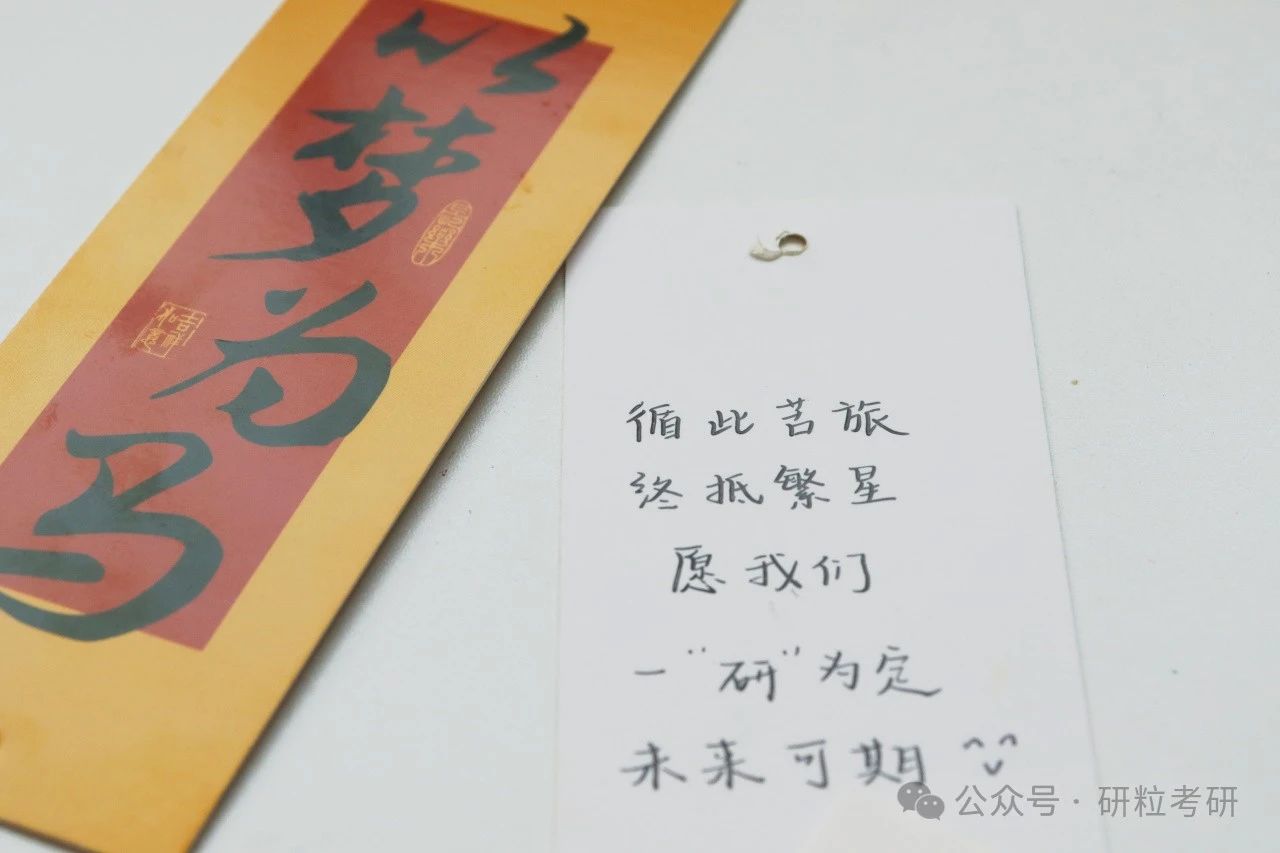 以梦为马
吉祥
如意
循此苦旅
终抵繁星
愿我们
一“研”为定
未来可期
公众号·研粒考研